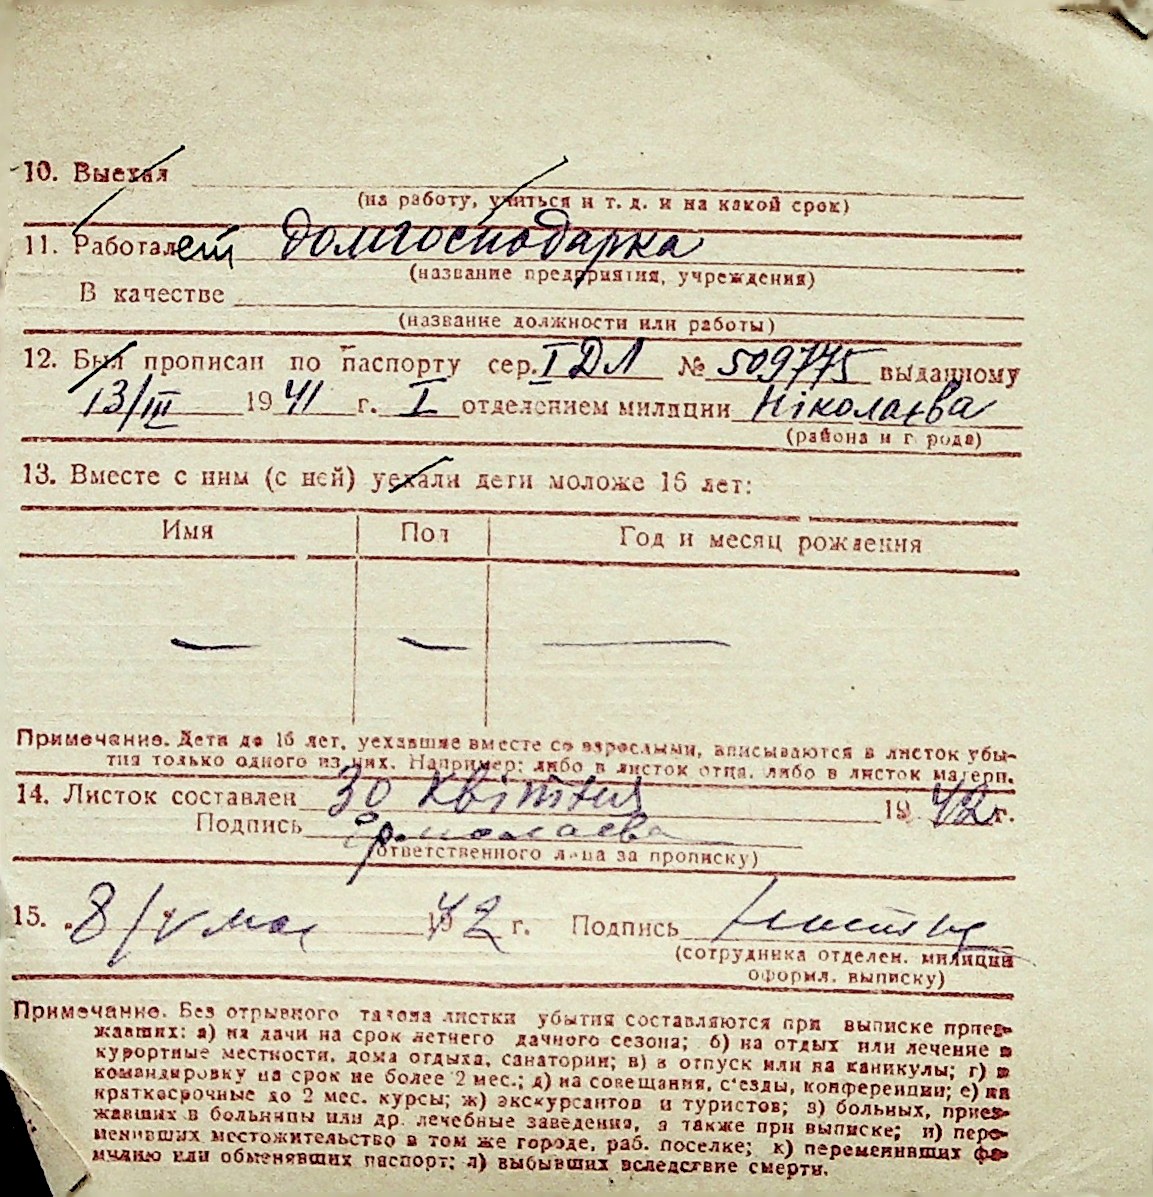 10. Выехал
(на работу, учиться и т. д. и на какой срок)
11. Работает домгосподарка
(название предприятия, учреждения)
В качестве
(название должности или работы)
12. Был прописан по паспорту сер. I ДЛ № 509775 выданному
13/III 1941 г. I отделением милиции Ніколаєва
(района и города)
13. Вместе с ним (с ней) уехали дети моложе 16 лет:
Имя Пол Год и месяц рождения
— — —
Примечание. Дети до 16 лет, уехавшие вместе со взрослыми, вписываются в листок убы-
тия только одного из них. Например: либо в листок отца, либо в листок матери.
14. Листок составлен 30 квітня 1942 г.
Подпись Ермолаева
(ответственного лица за прописку)
15. „8/V мая 1942 г. Подпись
(сотрудника отделен. милиции
оформл. выписку)
Примечание. Без отрывного талона листки убытия составляются при выписке приез-
жавших: а) на дачи на срок летнего дачного сезона; б) на отдых или лечение в
курортные местности, дома отдыха, санатории; в) в отпуск или на каникулы; г) в
командировку на срок не более 2 мес.; д) на совещания, с'езды, конференции; е) на
краткосрочные до 2 мес. курсы; ж) экскурсантов и туристов; з) больных, приез-
жавших в больницы или др. лечебные заведения, а также при выписке; и) пере-
менивших местожительство в том же городе, раб. поселке; к) переменивших фа-
милию или обменявших паспорт; л) выбывших вследствие смерти.